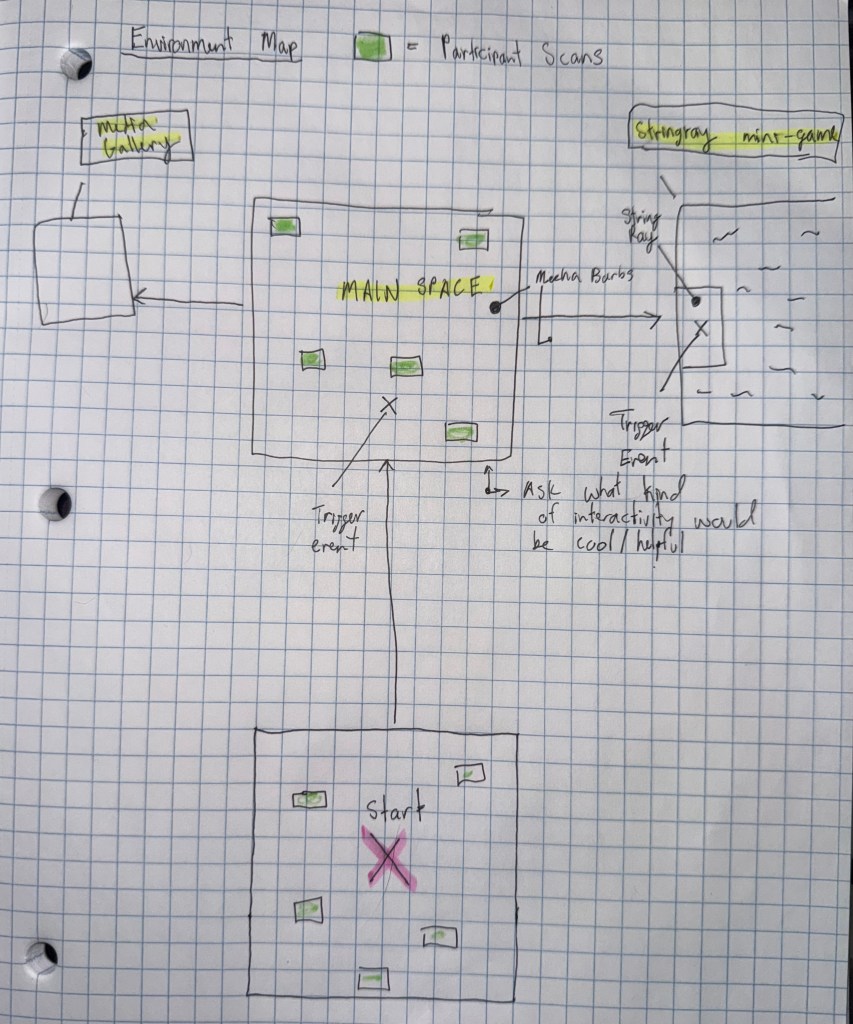 Environment Map
= Participant Scans
Media
Gallery
Stringray mini-game
String
Ray
Mecha Barbs
MAIN SPACE
Trigger
Event
Trigger
event
Ask what kind
of interactivity would
be cool/helpful
Start